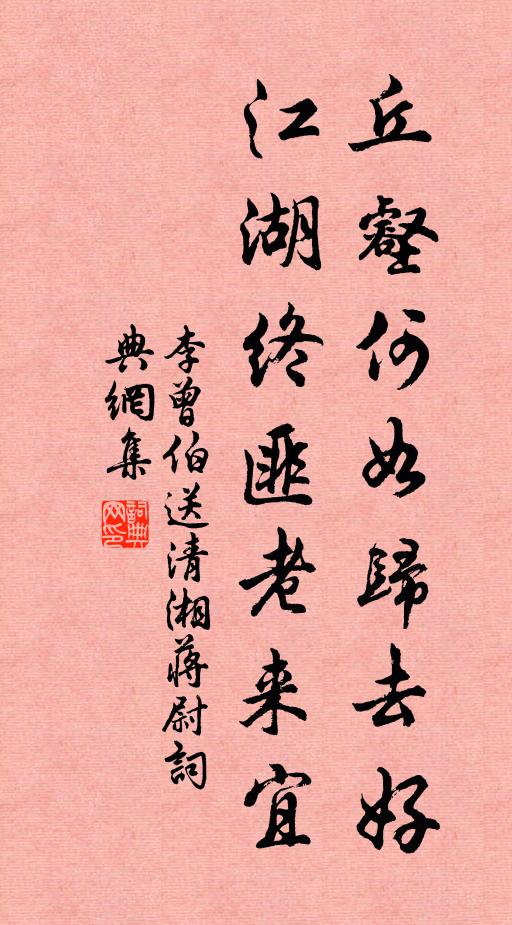 丘壑何如歸去好
江湖終匪老来宜
李曾伯送清湘蔣尉詞
典網集
詞典網印